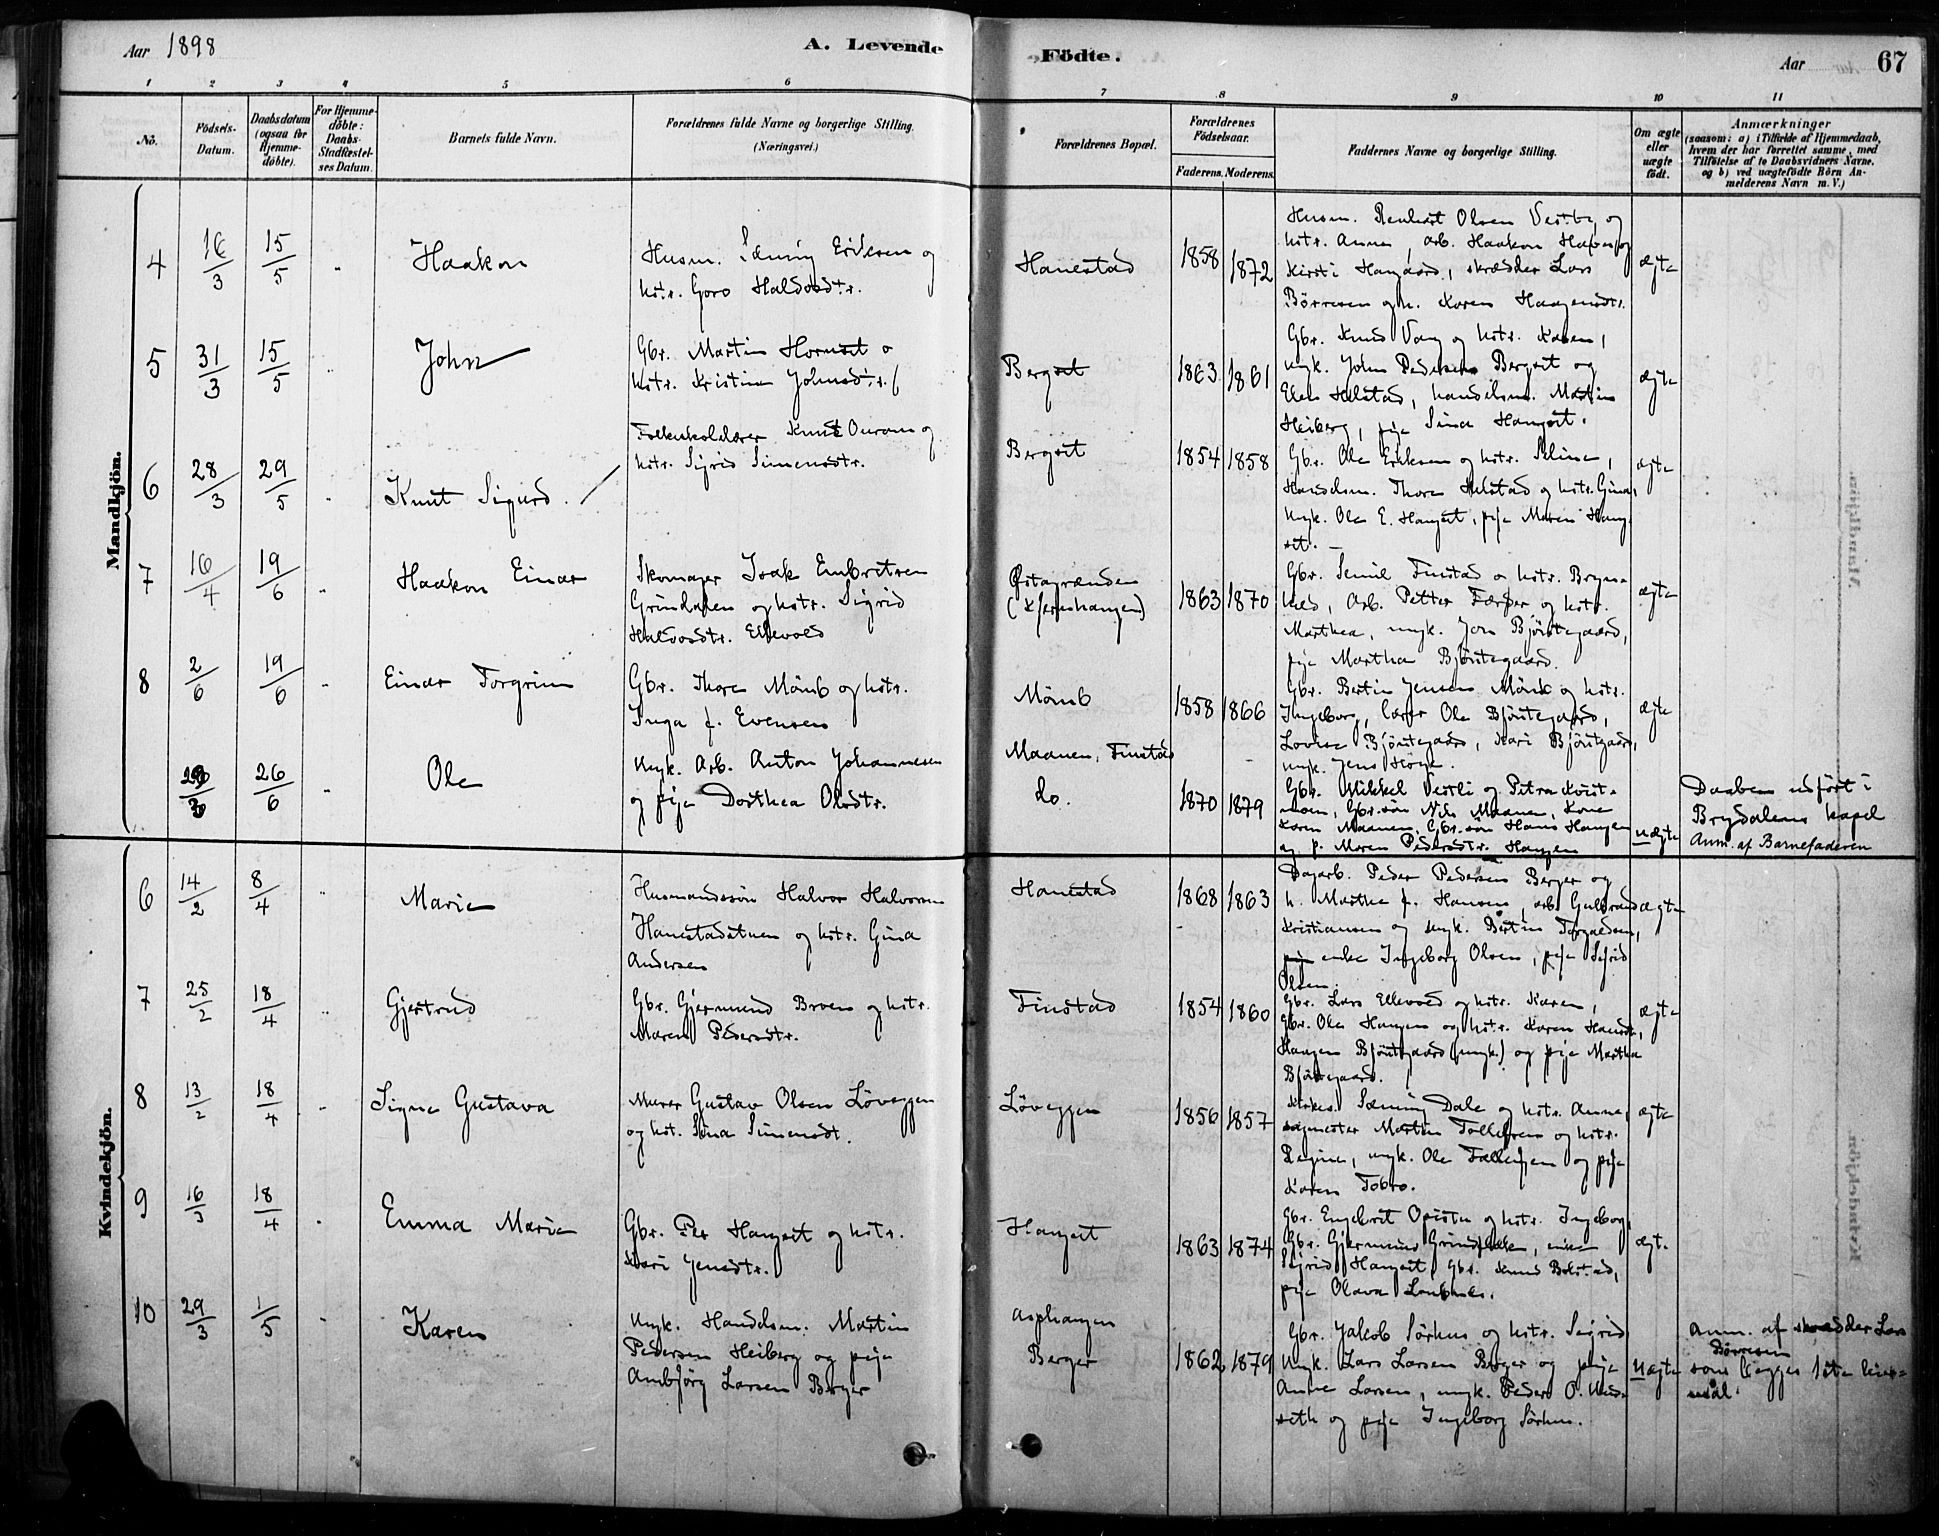 Aar 1898
A. Levende Födte.
Aar
67
1 2 3 4 5 6 7 8 9 10 11
No.
Födsels-Datum.
Daabsdatum (ogsaa for Hjemme-döbte).
For Hjemme-döbte: Daabs-Stadfæstel-ses Datum.
Barnets fulde Navn.
Forældrenes fulde Navne og borgerlige Stilling. (Næringsvei.)
Forældrenes Bopæl.
Forældrenes Födselsaar.
Faderens. Moderens.
Faddernes Navne og borgerlige Stilling.
Om ægte eller uægte födt.
Anmærkninger
(saasom: a) i Tilfælde af Hjemmedaab,
hvem der har forrettet samme, med
Tilföielse af to Daabsvidners Navne,
og b) ved uægtefödte Börn An-
melderens Navn m. V.)
Mandkjön.
4 16/3 15/5 Haakon
Husm. Sæming Eriksen og
hstr. Goro Halvosdtr.
Hanestad 1858 1872
Husm. Olsen Vestby og
hstr. Anne, arb. Haakon
Kirsti Haugaard, skrædder Lars
Börresen og h. Karen Haagensdtr.
ægte
5 31/3 15/5 John
Gbr. Martin Hornset o
hstr. Kristine Johnsdtr.
Bergset 1863 1861
Gbr. Knud Vang og hstr. Karen,
ungk. John Pedersen Bergset og
Elen Helstad, handelsm. Martin
Heiberg, pige Sina Hangset.
ægte
6 28/3 29/5 Knut Sigurd.
Folkeskolelærer Knut Ouram og
hstr. Sigrid Simensdtr.
Bergset 1854 1858
Gbr. Ole Eriksen og hstr. Seline,
Handelsm. Thore Helstad og hstr. Gina,
ungk. Ole E. Hangset, pige Maren Hang-
set.
ægte
7 16/4 19/6 Haakon Einar
Skomager Isak Embretsen
Grindalen og hstr. Sigrid
Halvosdtr. Ellevold
Östagrænden
(Kjernshaugen) 1863 1870
Gbr. Semil Finstad o hstr. Bryn-
hild, Arb. Petter og hstr.
Marthea, ungk. Jon Bjöntegaard,
pige Martha Bjöntegaard.
ægte
8 2/6 19/6 Einar Torgrim
Gbr. Thore Mömb og hstr.
Inga f. Evensen
Mömb 1858 1866
Gbr. Bertin Jensen Mömb og hstr.
Ingeborg, lærer Ole Bjöntegaard,
Lovise Bjöntegaard, Kari Bjöntegaard,
ungk. Jens
ægte
26/6 Ole
Ungk. Arb. Anton Johannesen
og pige Dorthea Olsdtr.
Maanen, Finstad
do. 1870 1879
Gbr. Mikkel Vestli og Petra Kvist-
moen, Gbr.sön Nils Maanen, Kone
Karen Maanen, Gbr.sön Hans Haugen
og p. Maren Pedersdtr. Haugen
uægte
Daaben udfört i
Brydalens kapel
Anm. af Barnefaderen
Kvindekjön.
6 14/2 8/4 Marie
Husmandssön Halvor Halvorsen
Hanestadstuen og hstr. Gina
Andersen
Hanestad 1868 1863
Dagarb. Peder Pedersen Berger og
h. Marthe f. Hansen, arb. Gulbrand
Kristiansen og ungk. Bertin Torgaldsen,
enke Ingeborg Olsen, pige Sigrid
Olsen.
ægte
7 25/2 18/4 Gjertrud
Gbr. Gjermund Broen og hstr.
Maren Pedersdtr.
Finstad 1854 1860
Gbr. Lars Ellevold og hstr. Karen,
Gbr. Ole Haugen og hstr. Karen Hansdtr,
Haagen Bjöntegaard (ungk.) og pige Martha
Bjöntegaard.
ægte
8 13/2 18/4 Signe Gustava
Murer Gustav Olsen Löveggen
og hst. Sina Simensdt.
Löveggen 1856 1857
Kirkes. Sæming Dale og hstr. Anne,
sagmester Martin Tollefsen og hstr.
Regine, ungk. Ole Tollefsen og pige
Karen Tobro.
ægte
9 16/3 18/4 Emma Marie
Gbr. Per Hangset og hstr.
Kari Jensdtr.
Hangset 1863 1874
Gbr. Engebret Opistu og hstr. Ingeborg,
Gbr. Gjermund, enke
Sigrid Hangset, Gbr. Knud Bolstad,
pige Olava
ægt.
10 29/3 1/5 Karen
Ungk. Handelsm. Martin
Pedersen Heiberg og pige
Ambjörg Larsen Berger
Asphaugen
Berger 1862 1879
Gbr. Jakob Sörhus og hstr. Sigrid
Ungk. Lars Larsen Berger og pige
Anne Larsen, ungk. Peder O.
seth og pige Ingeborg Sörhus.
Uægte
Anm. af skrædder Lars
Börresen
som begges 1ste leier-
maal.